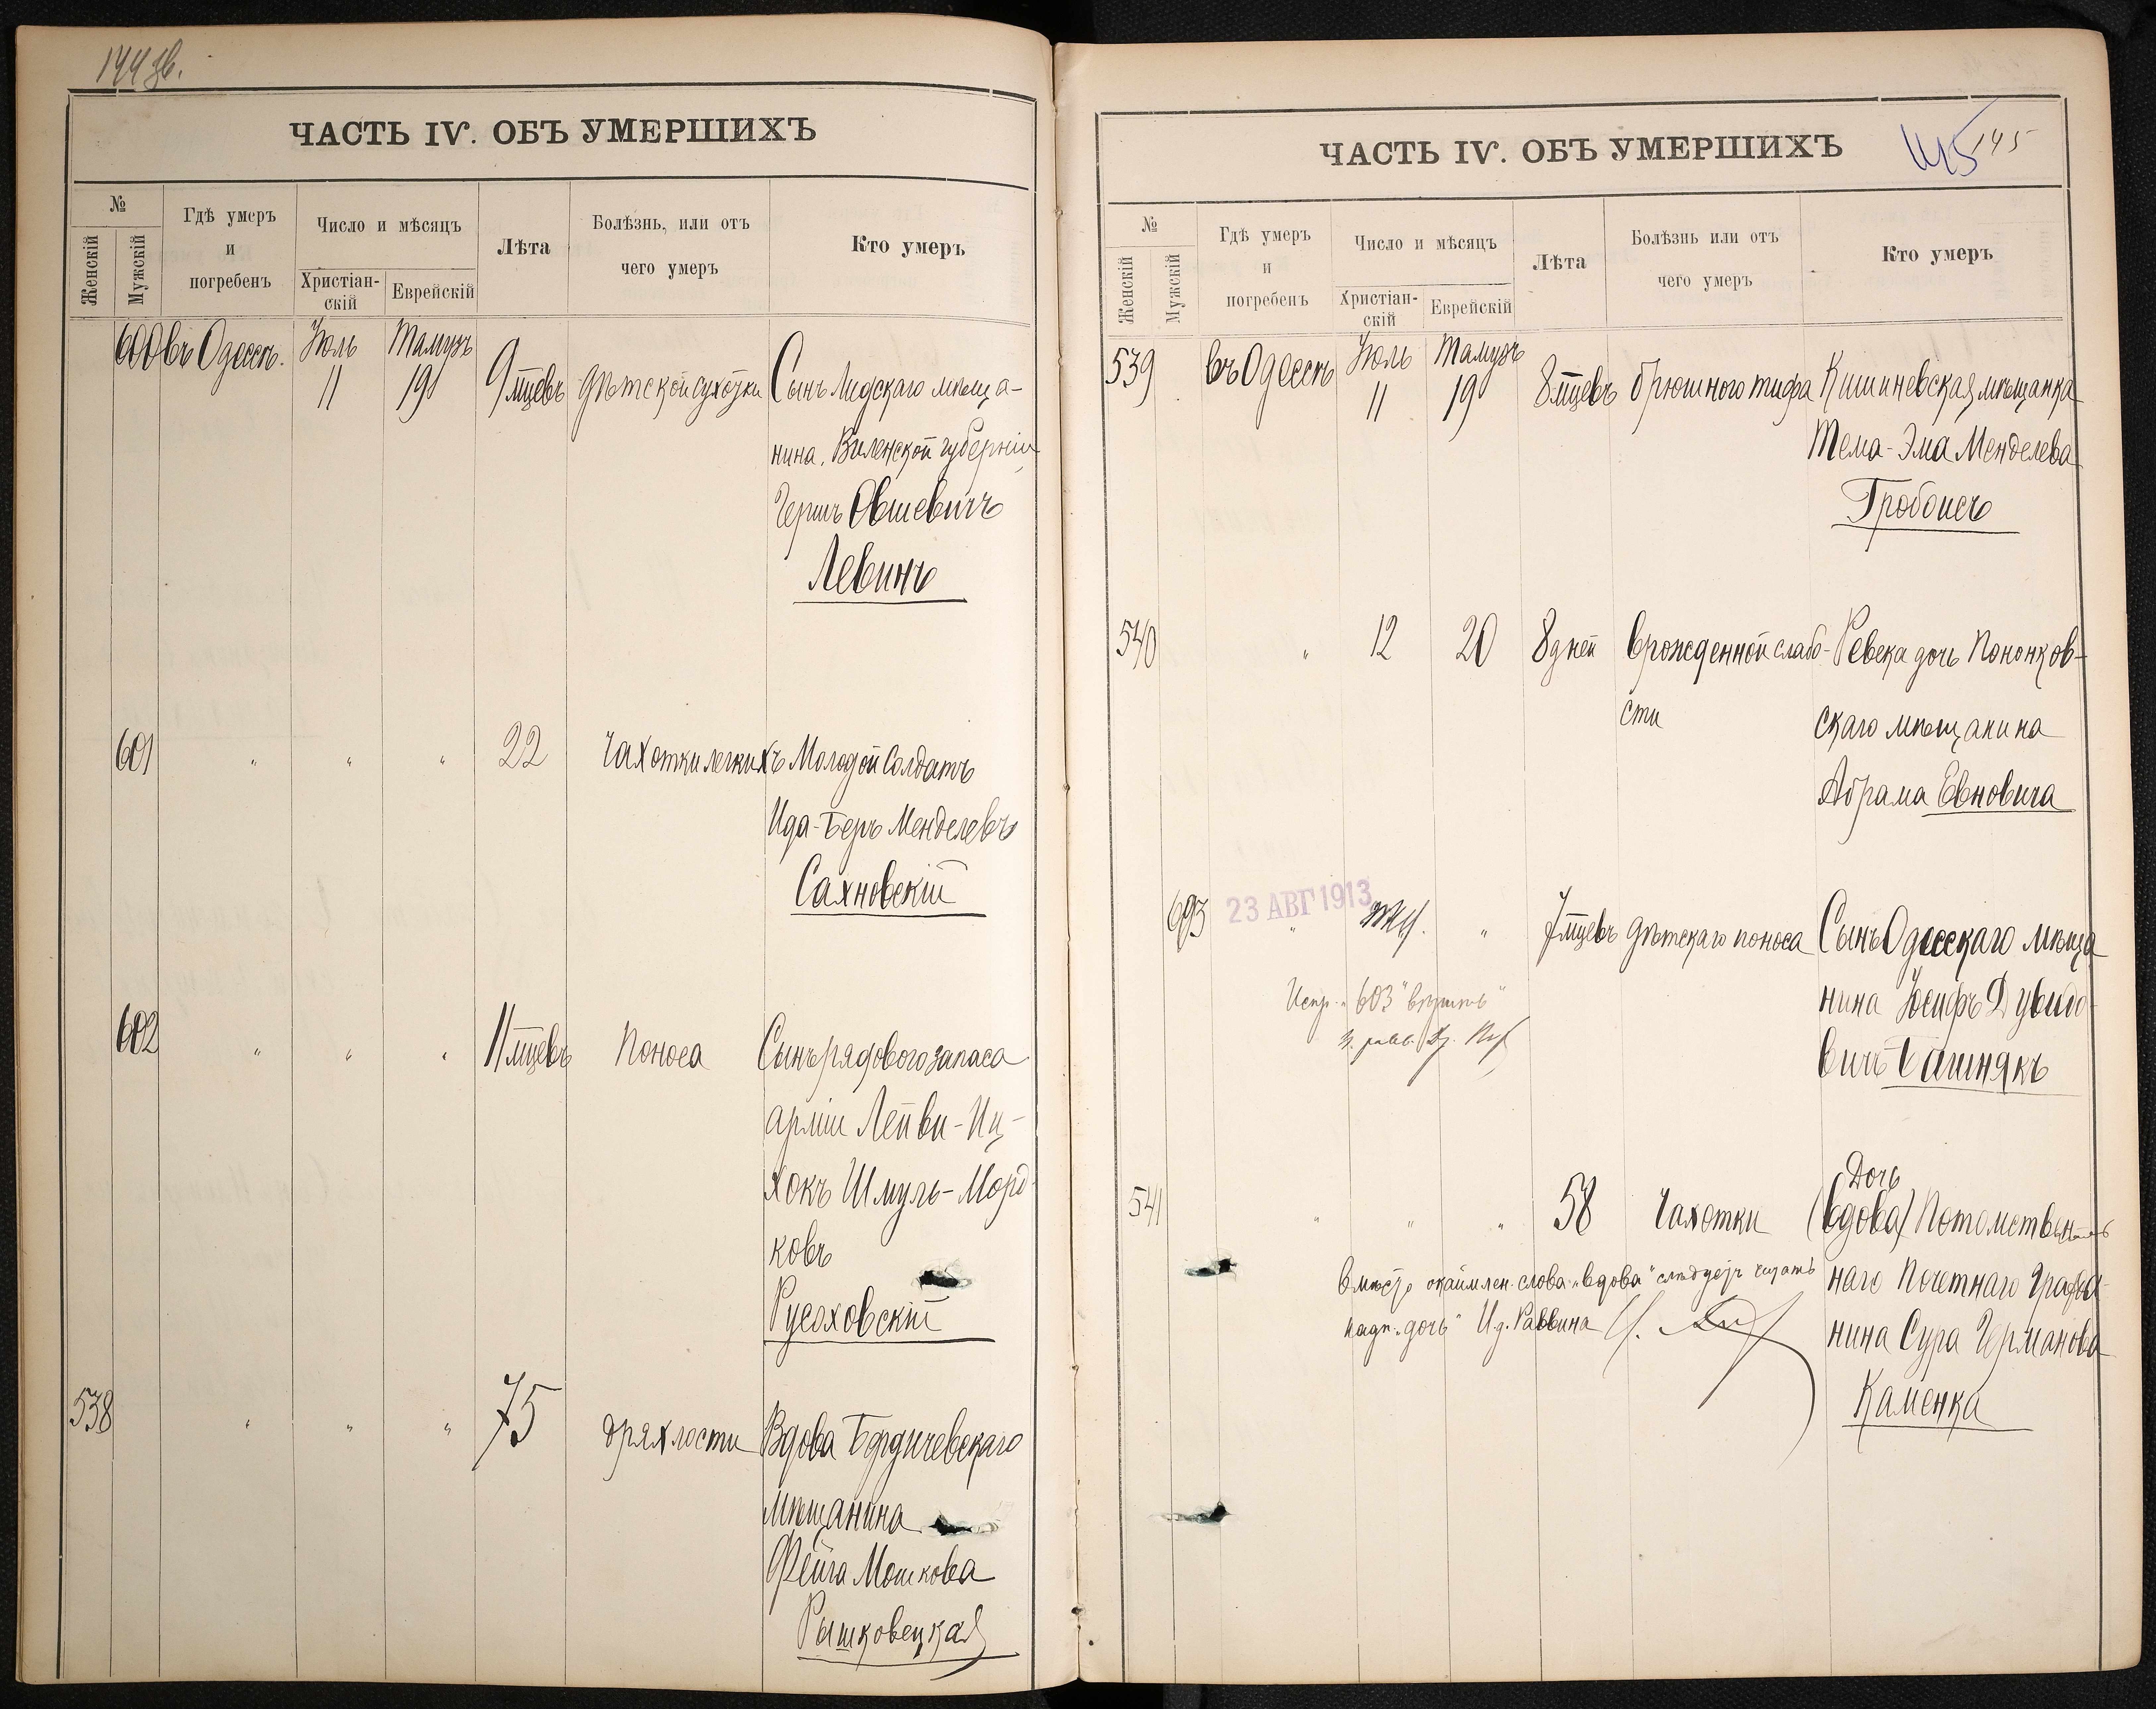 144 об.
ЧАСТЬ IV. ОБЪ УМЕРШИХЪ
№
Женскій
Мужскій
Гдѣ умеръ
и
погребенъ
Число и мѣсяцъ
Христіан-
скій
Еврейскій
Лѣта
Болѣзнь, или отъ
чего умеръ
Кто умеръ
600 въ Одессѣ. Іюль Тамузъ
11 19 9 мцевъ дѣтской сухотки Сынъ Лидскаго мѣща-
нина, Виленской губерніи
Гершъ Овшевичъ
Левинъ
601 " " " 22 чахотки легкихъ Молодой Солдатъ
Ида-Беръ Менделевъ
Сахновскій
602 " " " 11 мцевъ Поноса Сынъ рядового запаса
арміи Лейви-Иц-
хокъ Шмуль-Морд-
ковъ
Русоховскій
538 " " " 75 дряхлости Вдова Бердичевскаго
мѣщанина
Фейга Мошкова
Рышковецкая
ЧАСТЬ IV. ОБЪ УМЕРШИХЪ
145 145
№
Женскій
Мужскій
Гдѣ умеръ
и
погребенъ
Число и мѣсяцъ
Христіан-
скій
Еврейскій
Лѣта
Болѣзнь или отъ
чего умеръ
Кто умеръ
539 въ Одессѣ Іюль Тамузъ
11 19 8 мцевъ брюшного тифа Кишиневская мѣщанка
Тема-Эма Менделева
Гробоисъ
540 " 12 20 8 дней врожденной слабо- Ревека дочь
сти скаго мѣщанина
Абрама Евновича
23 АВГ 1913
603 " " 7 мцевъ дѣтскаго поноса Сынъ Одесскаго мѣща
нина Іосифъ Дувидо-
вичъ Башнякъ
Испр. "603" вѣрить
Дочь
541 " " " 58 Чахотки (вдова) Потомствен
наго Почетнаго Гражда-
нина Сура Германова
Каменка
вмѣсто окаймлен. слова "вдова" слѣдуетъ читать
надп. "дочь" И.д. Раввина